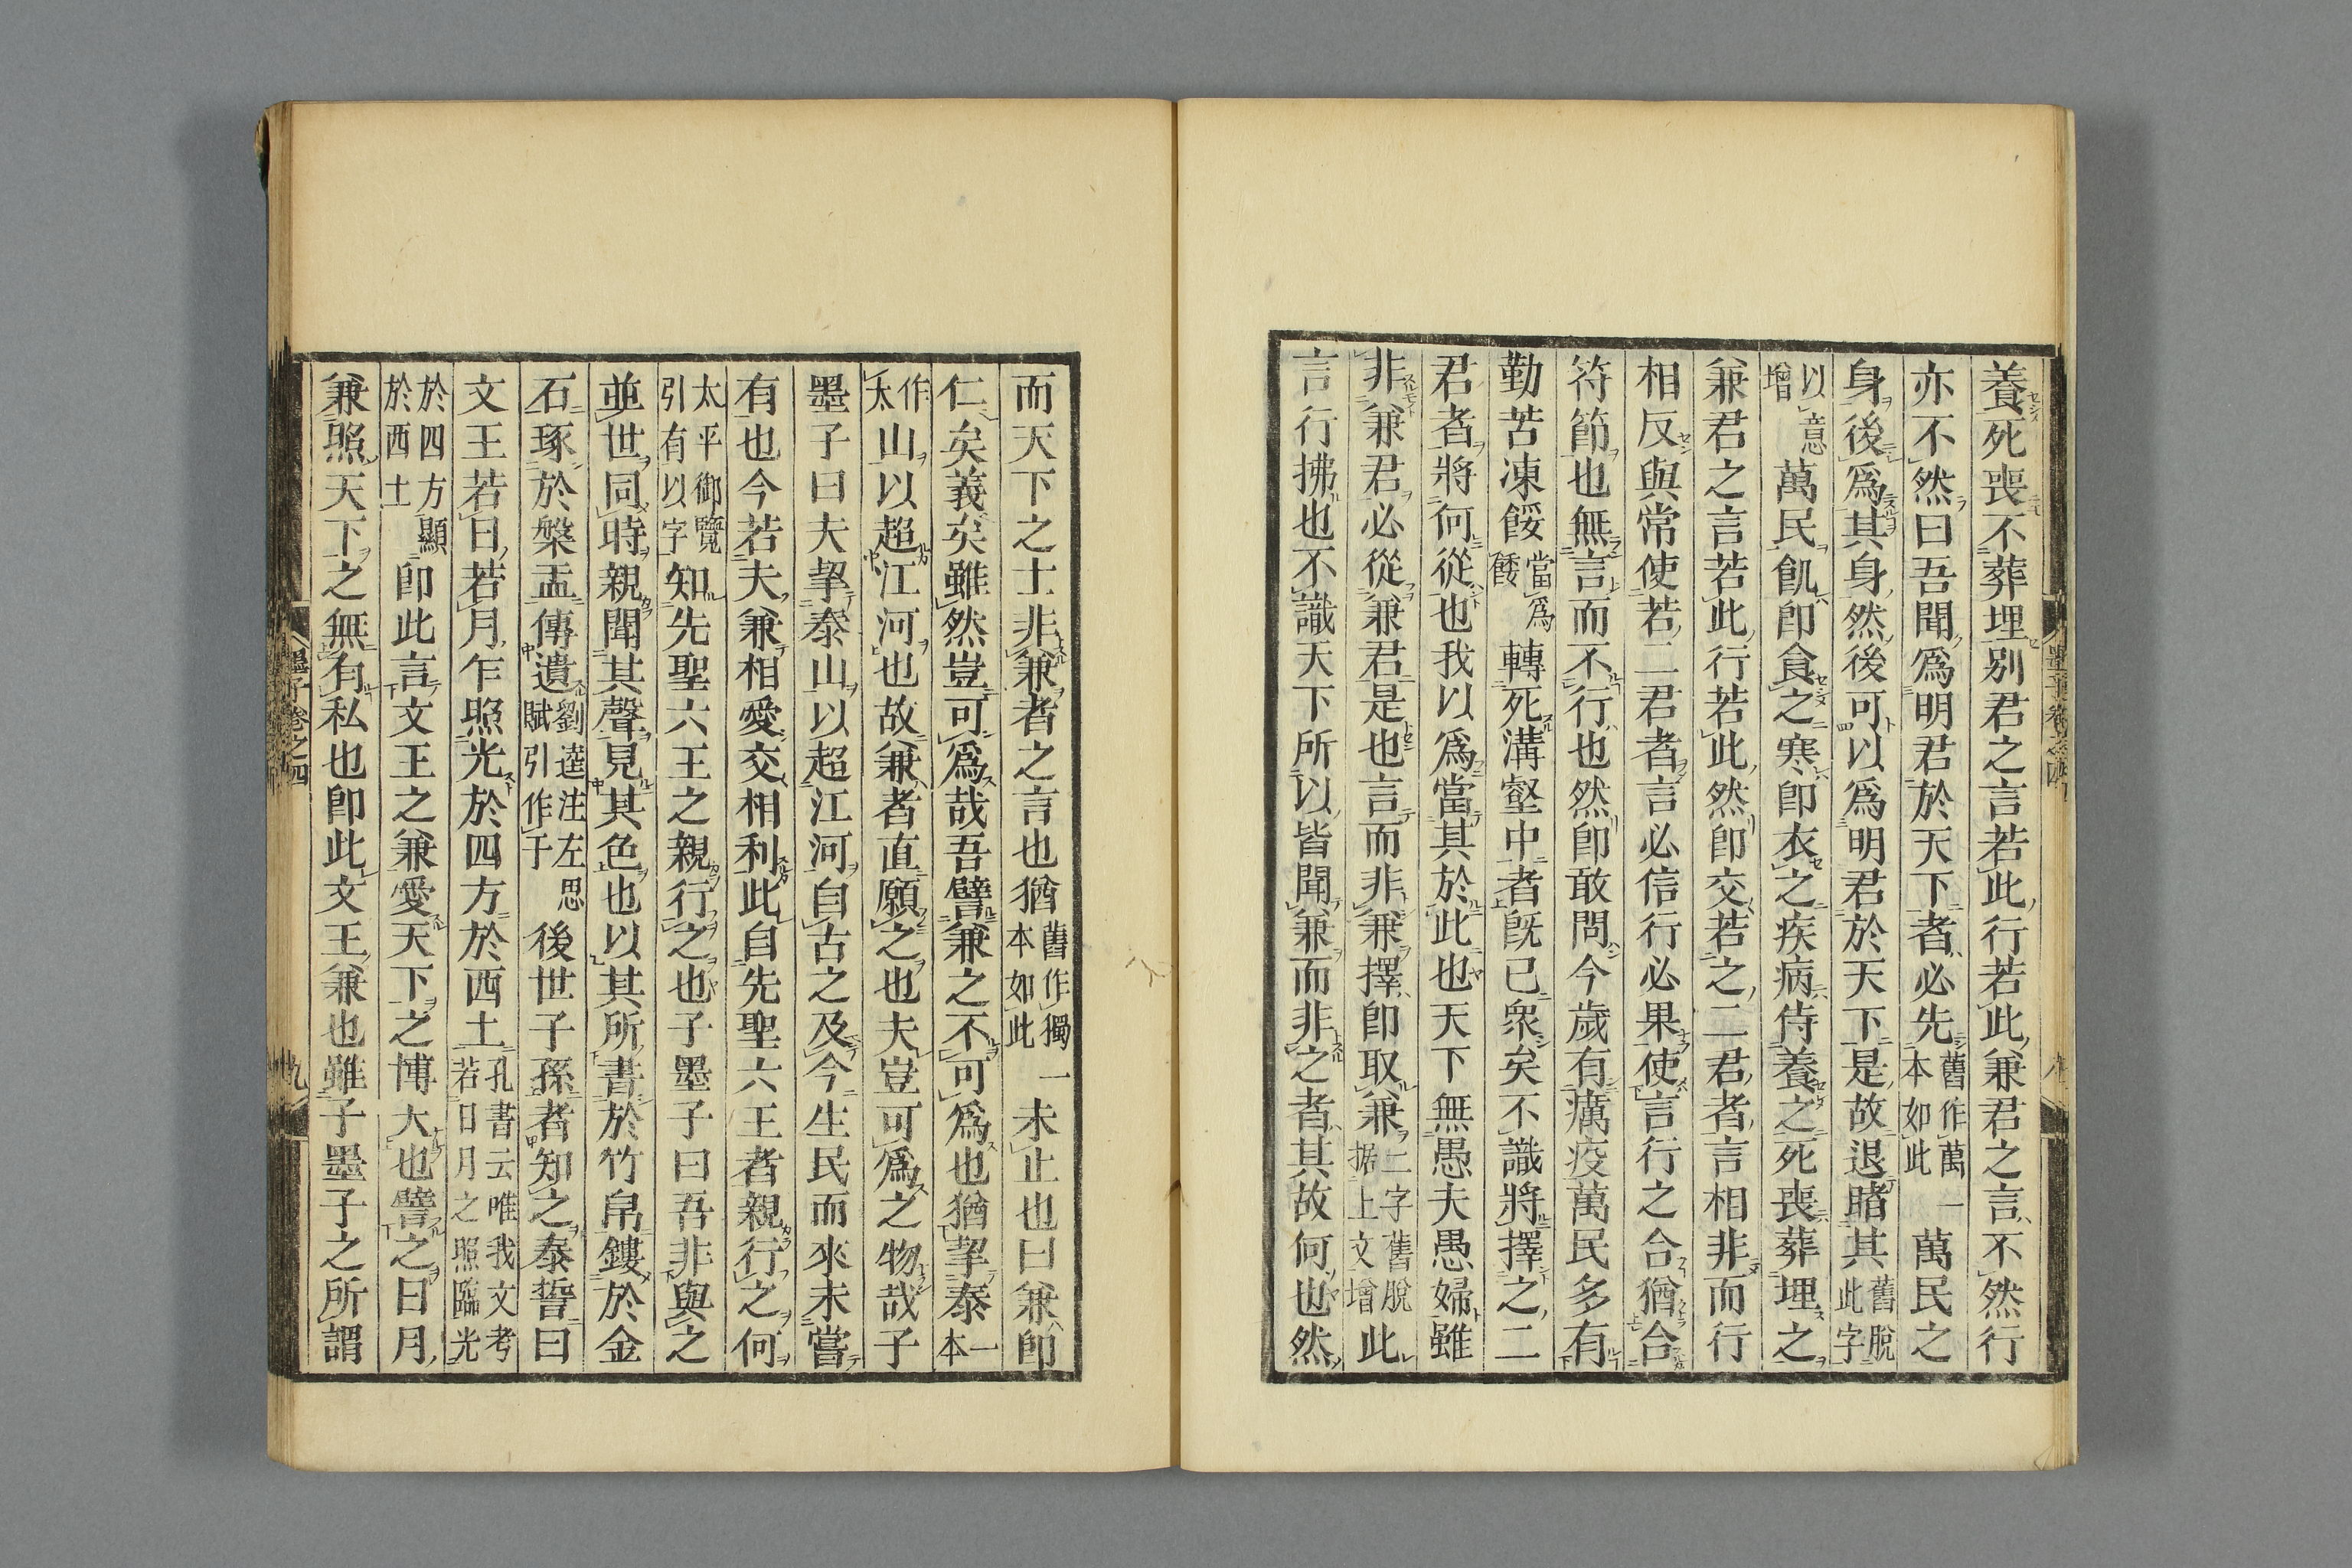 養死喪不葬埋別君之言若此行若此兼君之言不然行
亦不然曰吾聞爲明君於天下者必先舊作萬一本如此萬民之
身後爲其身然後可以爲明君於天下是故退睹其舊脫此字
以意增萬民飢卽食之寒卽衣之疾病侍養之死喪葬埋之
兼君之言若此行若此然卽交若之二君者言相非而行
相反與常使若二君者言必信行必果使言行之合猶合
符節也無言而不行也然卽敢問今歲有癘疫萬民多有
勤苦凍餒當爲餧轉死溝壑中者旣已衆矣不識將擇之二
君者將何從也我以爲當其於此也天下無愚夫愚婦雖
非兼君必從兼君是也言而非兼擇卽取兼二字舊脫据上文增此
言行拂也不識天下所以皆聞兼而非之者其故何也然
而天下之士非兼者之言也猶舊作獨一本如此未止也曰兼卽
仁矣義矣雖然豈可爲哉吾譬兼之不可爲也猶挈泰一本
作太山以超江河也故兼者直願之也夫豈可爲之物哉子
墨子曰夫挈泰山以超江河自古之及今生民而來未嘗
有也今若夫兼相愛交相利此自先聖六王者親行之何
太平御覽引有以字知先聖六王之親行之也子墨子曰吾非與之
並世同時親聞其聲見其色也以其所書於竹帛鏤於金
石琢於槃盂傳遺劉逵注左思賦引作于後世子孫者知之泰誓曰
文王若日若月乍照光於四方於西土孔書云唯我文考若日月之照臨光
於四方顯於西土卽此言文王之兼愛天下之博大也譬之日月
兼照天下之無有私也卽此文王兼也雖子墨子之所謂
墨子卷之四
九